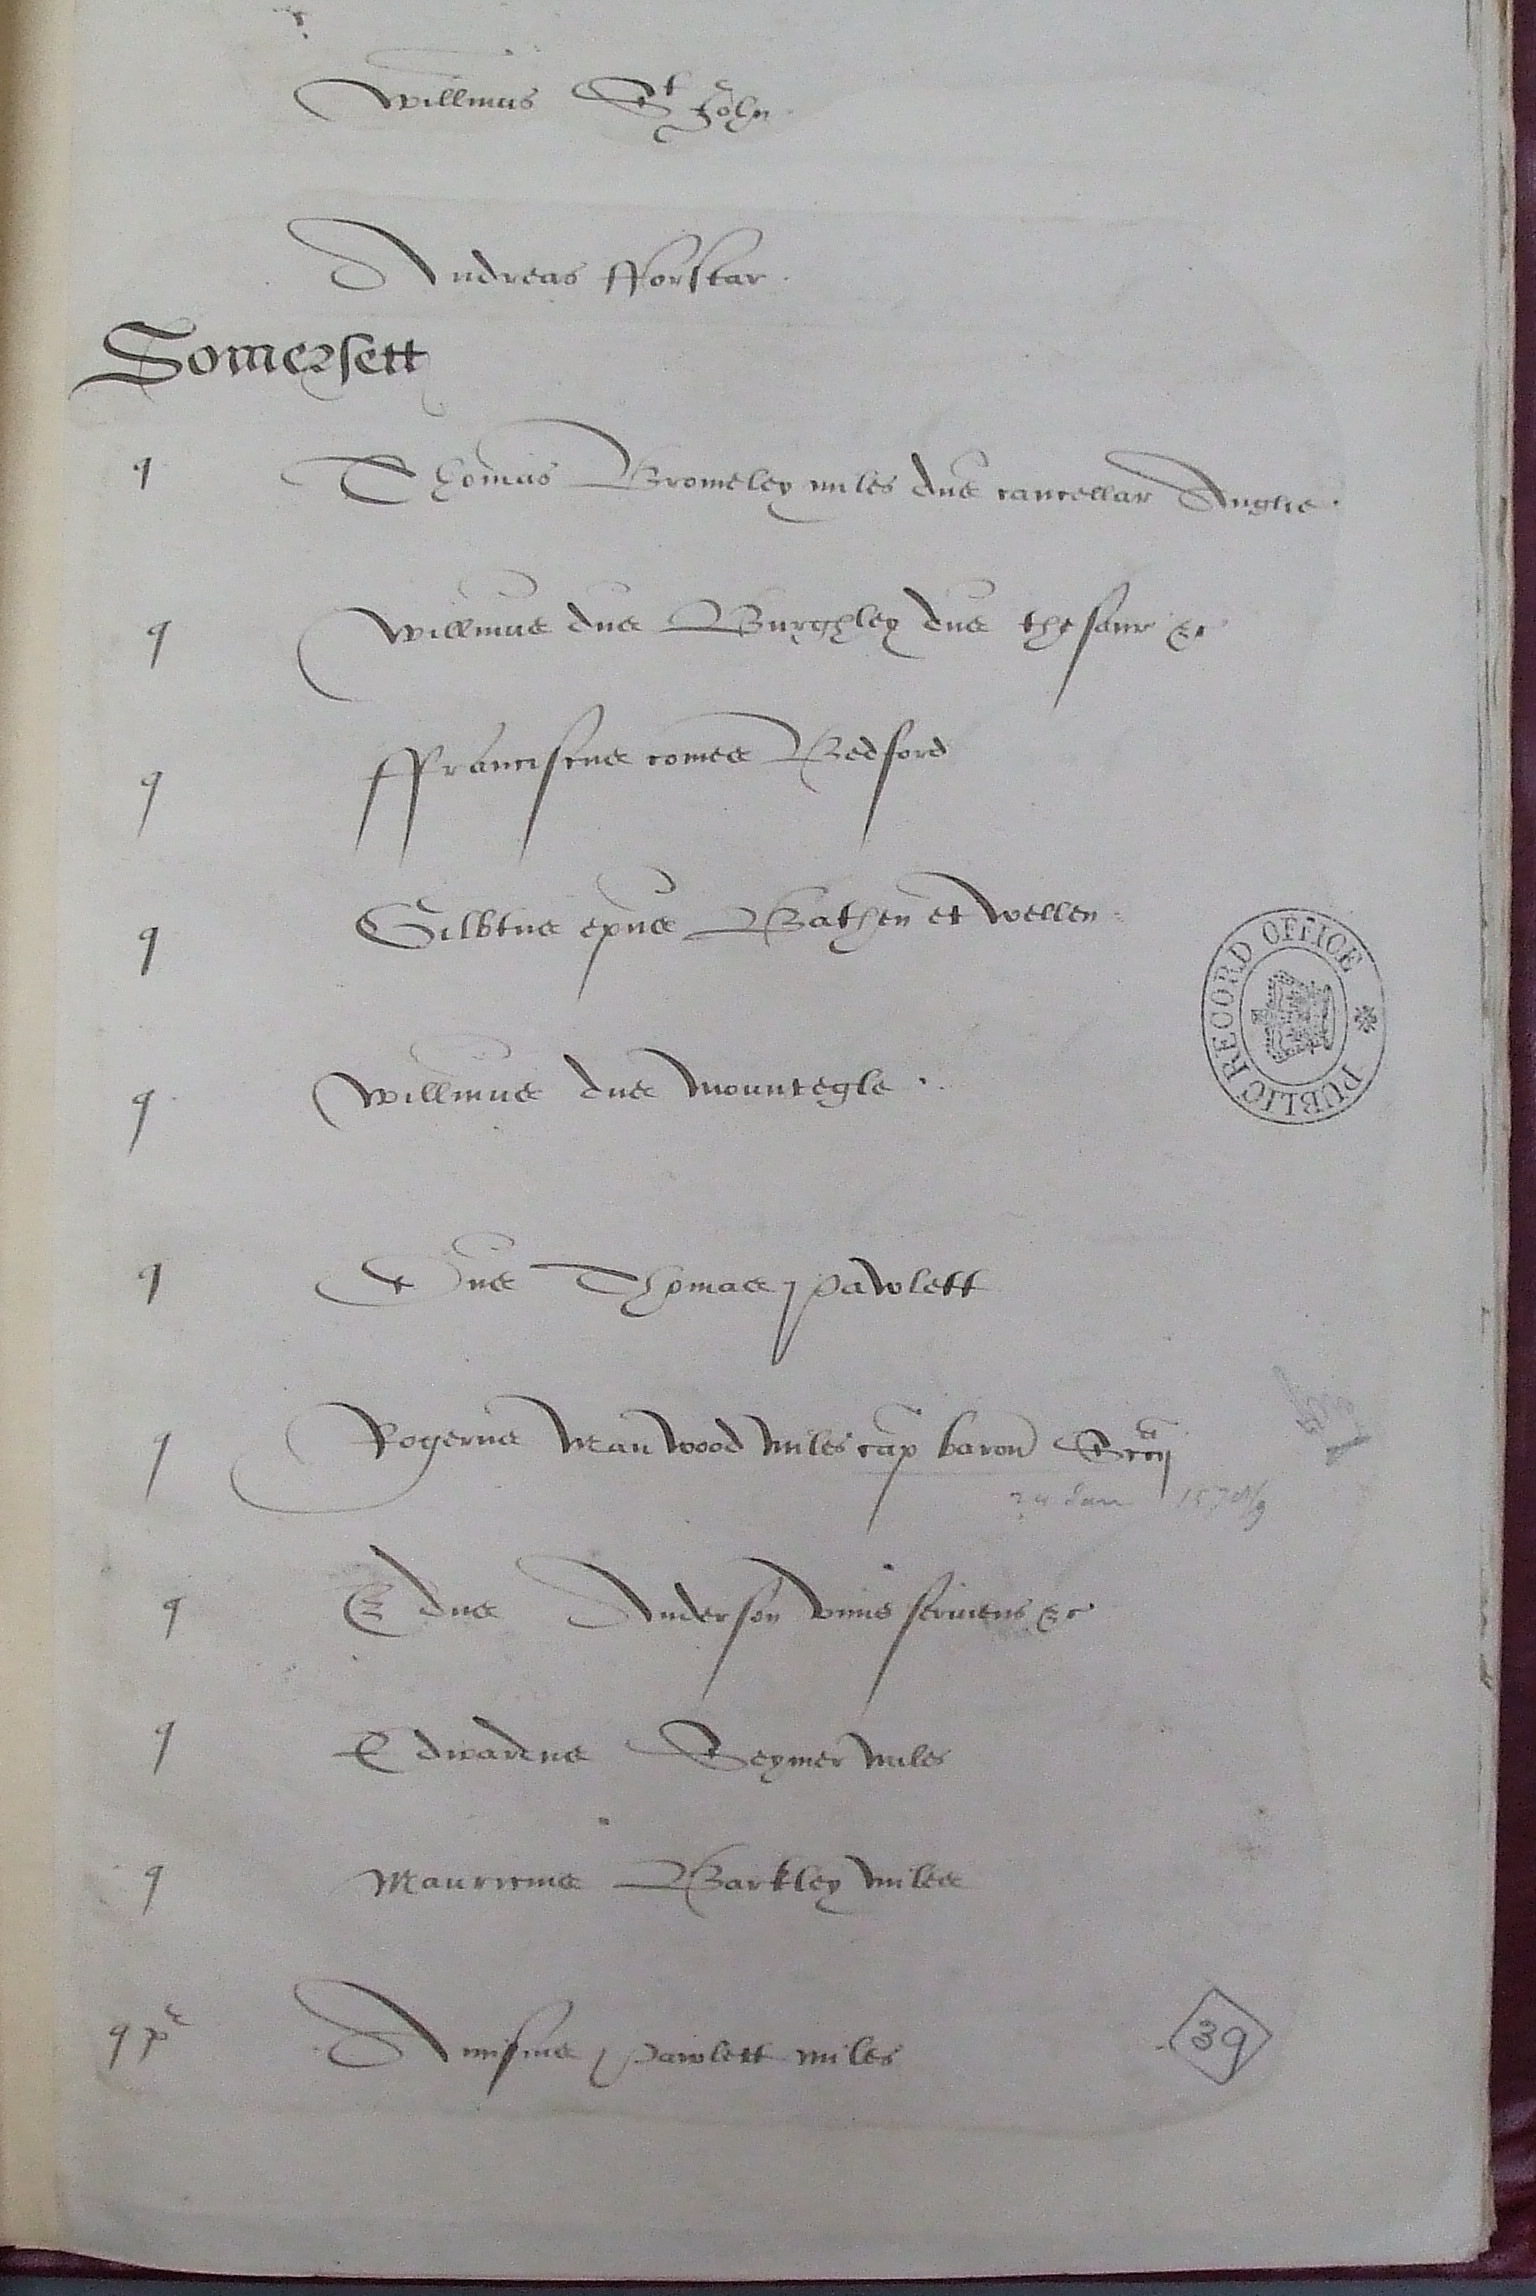 Willmus St John
Andreas fforstar
Somersett
q Thomas Bromeley miles dns cancellar Anglie
q Willmus dns Burghley dns thesaur &c
q ffranciscus comes Bedford
q Gilbtus epus Bathen et Wellen
q Willmus dns Mountegle
q Dns Thomas Pawlett
q Rogerus Manwood miles cap baron Sccij
24 Jan 1578/9
q Edus Anderson unus serviens &c
q Edwardus Seymer miles
q Mauricius Barkley miles
q Amisius Pawlett miles
PUBLIC RECORD OFFICE
39